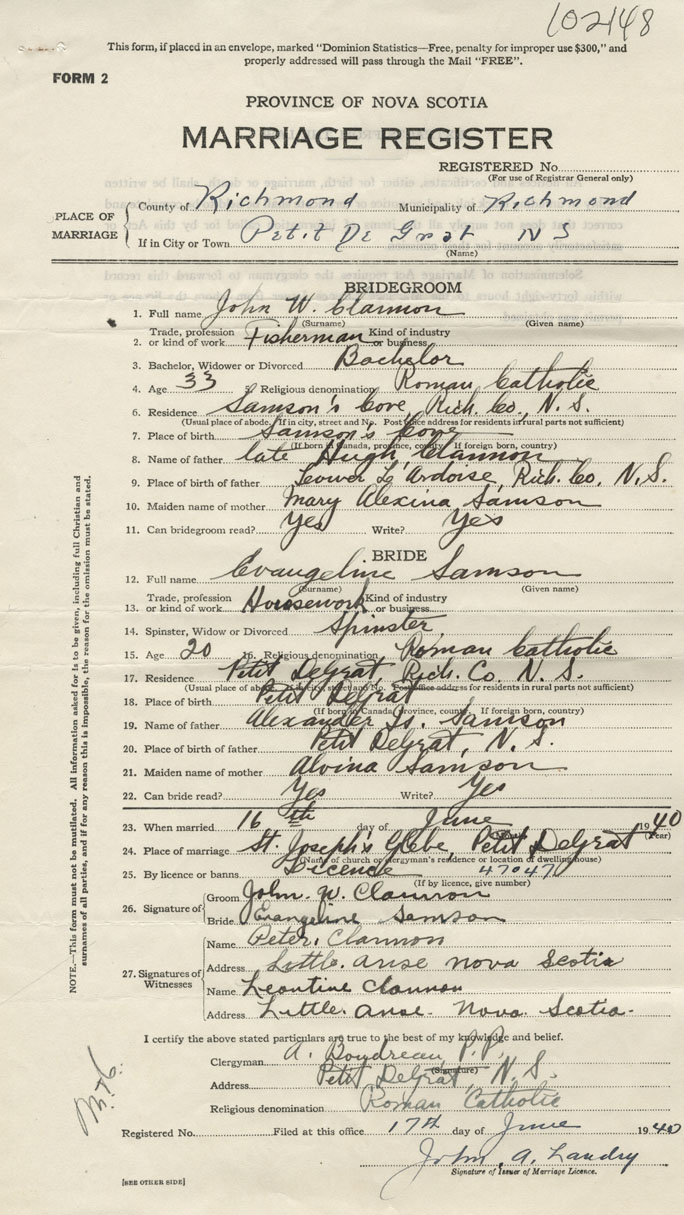 102148
This form, if placed in an envelope, marked "Dominion Statistics—Free, penalty for improper use $300," and
properly addressed will pass through the Mail "FREE".
FORM 2
PROVINCE OF NOVA SCOTIA
MARRIAGE REGISTER
REGISTERED No.
(For use of Registrar General only)
PLACE OF MARRIAGE
County of Richmond Municipality of Richmond
If in City or Town Petit De Grat N S
(Name)
BRIDEGROOM
1. Full name John W. Clannon
(Surname) (Given name)
2. Trade, profession or kind of work Fisherman Kind of industry or business
3. Bachelor, Widower or Divorced Bachelor
4. Age 33 5. Religious denomination Roman Catholic
6. Residence Samson's Cove, Rich. Co., N. S.
(Usual place of abode. If in city, street and No. Post office address for residents in rural parts not sufficient)
7. Place of birth Samson's Cove
(If born in Canada, province, county. If foreign born, country)
8. Name of father late Hugh Clannon
9. Place of birth of father Lower L'Ardoise, Rich. Co. N.S.
10. Maiden name of mother Mary Alexina Samson
11. Can bridegroom read? Yes Write? Yes
BRIDE
12. Full name Evangeline Samson
(Surname) (Given name)
13. Trade, profession or kind of work Housework Kind of industry or business
14. Spinster, Widow or Divorced Spinster
15. Age 20 16. Religious denomination Roman Catholic
17. Residence Petit DeGrat, Rich. Co. N. S.
(Usual place of abode. If in city, street and No. Post office address for residents in rural parts not sufficient)
18. Place of birth Petit DeGrat
(If born in Canada, province, county. If foreign born, country)
19. Name of father Alexander Js. Samson
20. Place of birth of father Petit DeGrat, N. S.
21. Maiden name of mother Alvina Samson
22. Can bride read? Yes Write? Yes
23. When married 16th day of June 1940
(Year)
24. Place of marriage St. Joseph's Glebe, Petit DeGrat
(Name of church or clergyman's residence or location of dwelling house)
25. By licence or banns Licence 47047
(If by licence, give number)
26. Signature of
Groom John. W. Clannon
Bride Evangeline Samson
27. Signatures of Witnesses
Name Peter. Clannon
Address Little. anse nova Scotia
Name Leontine Clannon
Address Little. anse. Nova. Scotia.
I certify the above stated particulars are true to the best of my knowledge and belief.
Clergyman A. Boudreau, P.P.
(Signature)
Address Petit DeGrat, N. S.
Religious denomination Roman Catholic
Registered No. Filed at this office 17th day of June 1940
John. A. Landry
Signature of Issuer of Marriage Licence.
[SEE OTHER SIDE]
NOTE.—This form must not be mutilated. All information asked for is to be given, including full Christian and
surnames of all parties, and if for any reason this is impossible, the reason for the omission must be stated.